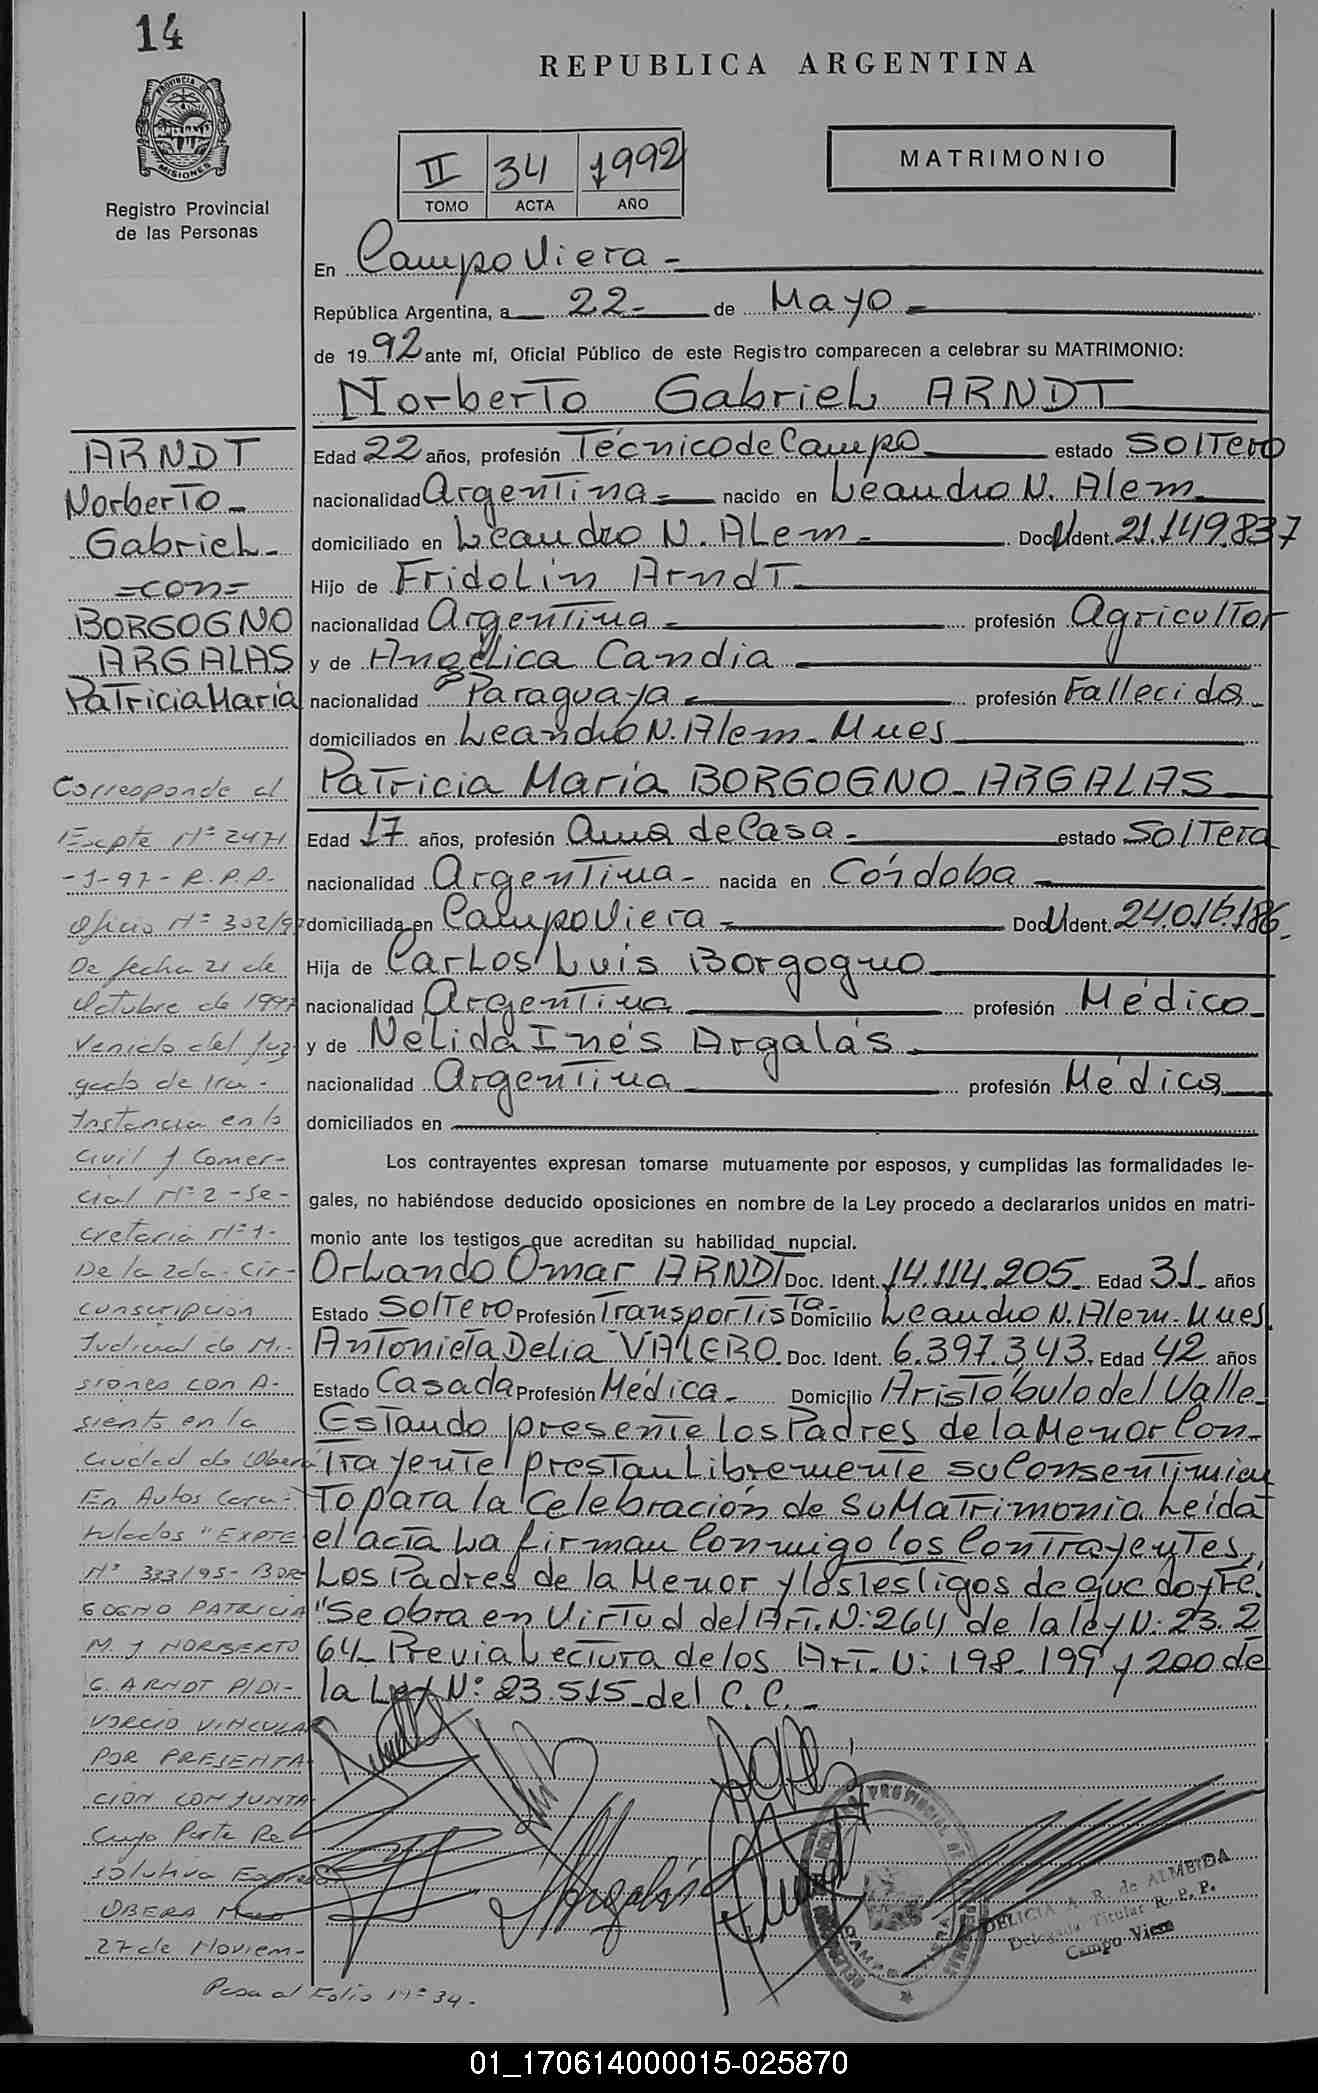 14
REPUBLICA ARGENTINA
PROVINCIA DE
MISIONES
Registro Provincial
de las Personas
II 34 1992
TOMO ACTA AÑO
MATRIMONIO
En Campo Viera -
República Argentina, a 22- de Mayo -
de 1992 ante mí, Oficial Público de este Registro comparecen a celebrar su MATRIMONIO:
Norberto Gabriel ARNDT
Edad 22 años, profesión Técnico de Campo estado Soltero
nacionalidad Argentina - nacido en Leandro N. Alem
domiciliado en Leandro N. Alem - Doc. Ident. 21.149.837
Hijo de Fridolin Arndt
nacionalidad Argentina - profesión Agricultor
y de Angélica Candia
nacionalidad Paraguaya - profesión Fallecida -
domiciliados en Leandro N. Alem - Mnes
Patricia María BORGOGNO - ARGALAS
Edad 17 años, profesión Ama de Casa - estado Soltera
nacionalidad Argentina - nacida en Córdoba
domiciliada en Campo Viera - Doc. Ident. 24.016.186.
Hija de Carlos Luis Borgogno
nacionalidad Argentina profesión Médico
y de Nélida Inés Argalás
nacionalidad Argentina profesión Médica
domiciliados en
Los contrayentes expresan tomarse mutuamente por esposos, y cumplidas las formalidades le-
gales, no habiéndose deducido oposiciones en nombre de la Ley procedo a declararlos unidos en matri-
monio ante los testigos que acreditan su habilidad nupcial.
Orlando Omar ARNDT Doc. Ident. 14.114.205 Edad 31 años
Estado Soltero Profesión Transportista Domicilio Leandro N. Alem - Mnes.
Antonieta Delia VALERO Doc. Ident. 6.397.343. Edad 42 años
Estado Casada Profesión Médica - Domicilio Aristóbulo del Valle
Estando presente los Padres de la Menor Con-
trayente prestan libremente su Consentimien
to para la Celebración de su Matrimonio. Leída
el acta la firman Conmigo los Contrayentes,
Los Padres de la Menor y los testigos de que doy Fé.
"Se obra en Virtud del Art. N: 264 de la ley N: 23.2
64 - Previa Lectura de los Art. N: 198. 199 y 200 de
la Ley N: 23.515 - del C.C. -
ARNDT
Norberto -
Gabriel -
= con =
BORGOGNO
ARGALAS
Patricia María
Corresponde al
Expte Nº 2471
- J - 97 - R.P.P.
Oficio Nº 302/97
De fecha 21 de
Octubre de 1997
Venido del Juz-
gado de 1ra -
Instancia en lo
Civil y Comer-
cial Nº 2 - Se-
cretaria Nº 1 -
De la 2da. Cir-
cunscripcion
Judicial de Mi-
siones con A-
siento en la
Ciudad de Obera
En Autos Cara-
tulados "EXPTE
Nº 333/95 - BOR-
GOGNO PATRICIA
M. Y NORBERTO
G. ARNDT P/DI-
VORCIO VINCULAR
POR PRESENTA
CION CONJUNTA
Cuyo Parte Re
solutiva Expresa
OBERA Mnes
27 de Noviem-
Pasa al Folio Nº 34 -
Argalás
DELICIA A. R. de ALMEIDA
Delegada Titular R. P. P.
Campo Viera
01_170614000015-025870